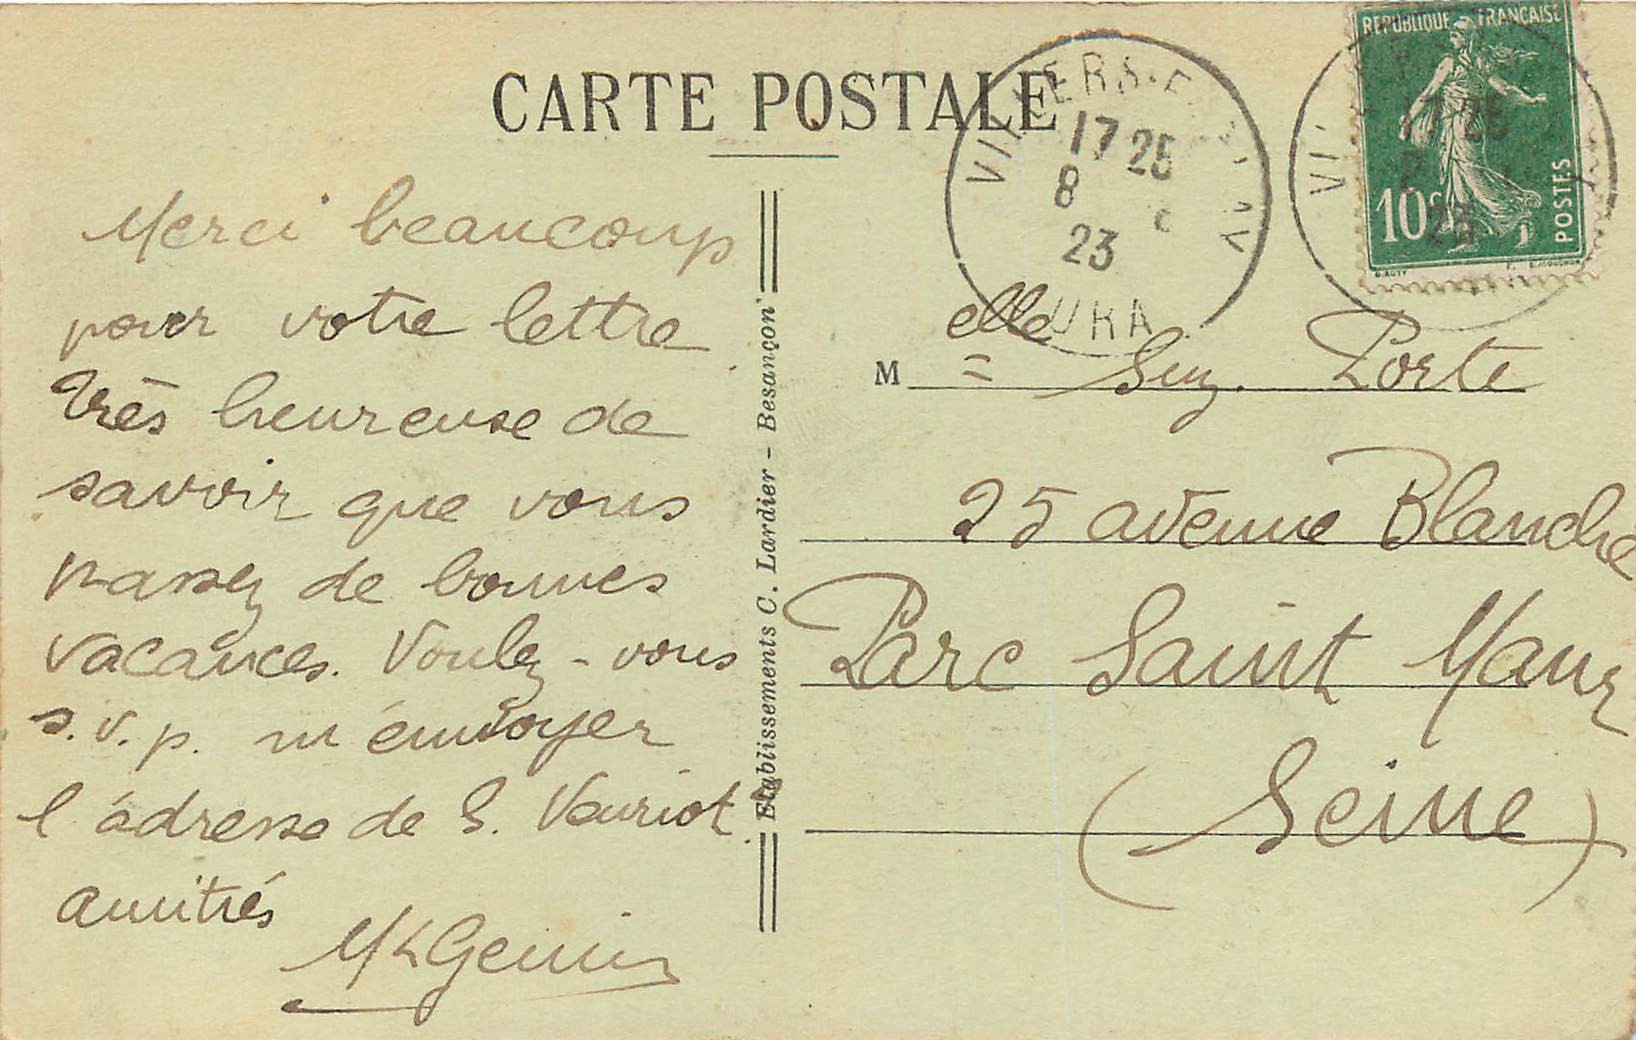 CARTE POSTALE
Merci beaucoup
pour votre lettre
Très heureuse de
savoir que vous
passez de bonnes
vacances. Voulez-vous
s.v.p. m'envoyer
l'adresse de S. Vauriot
amitiés
Genin
Etablissements C. Lardier - Besançon
17 25
8
23
REPUBLIQUE FRANÇAISE
10c
POSTES
17 25
23
Melle Suz. Porte
25 avenue Blanche
Parc Saint Maur
(Seine)